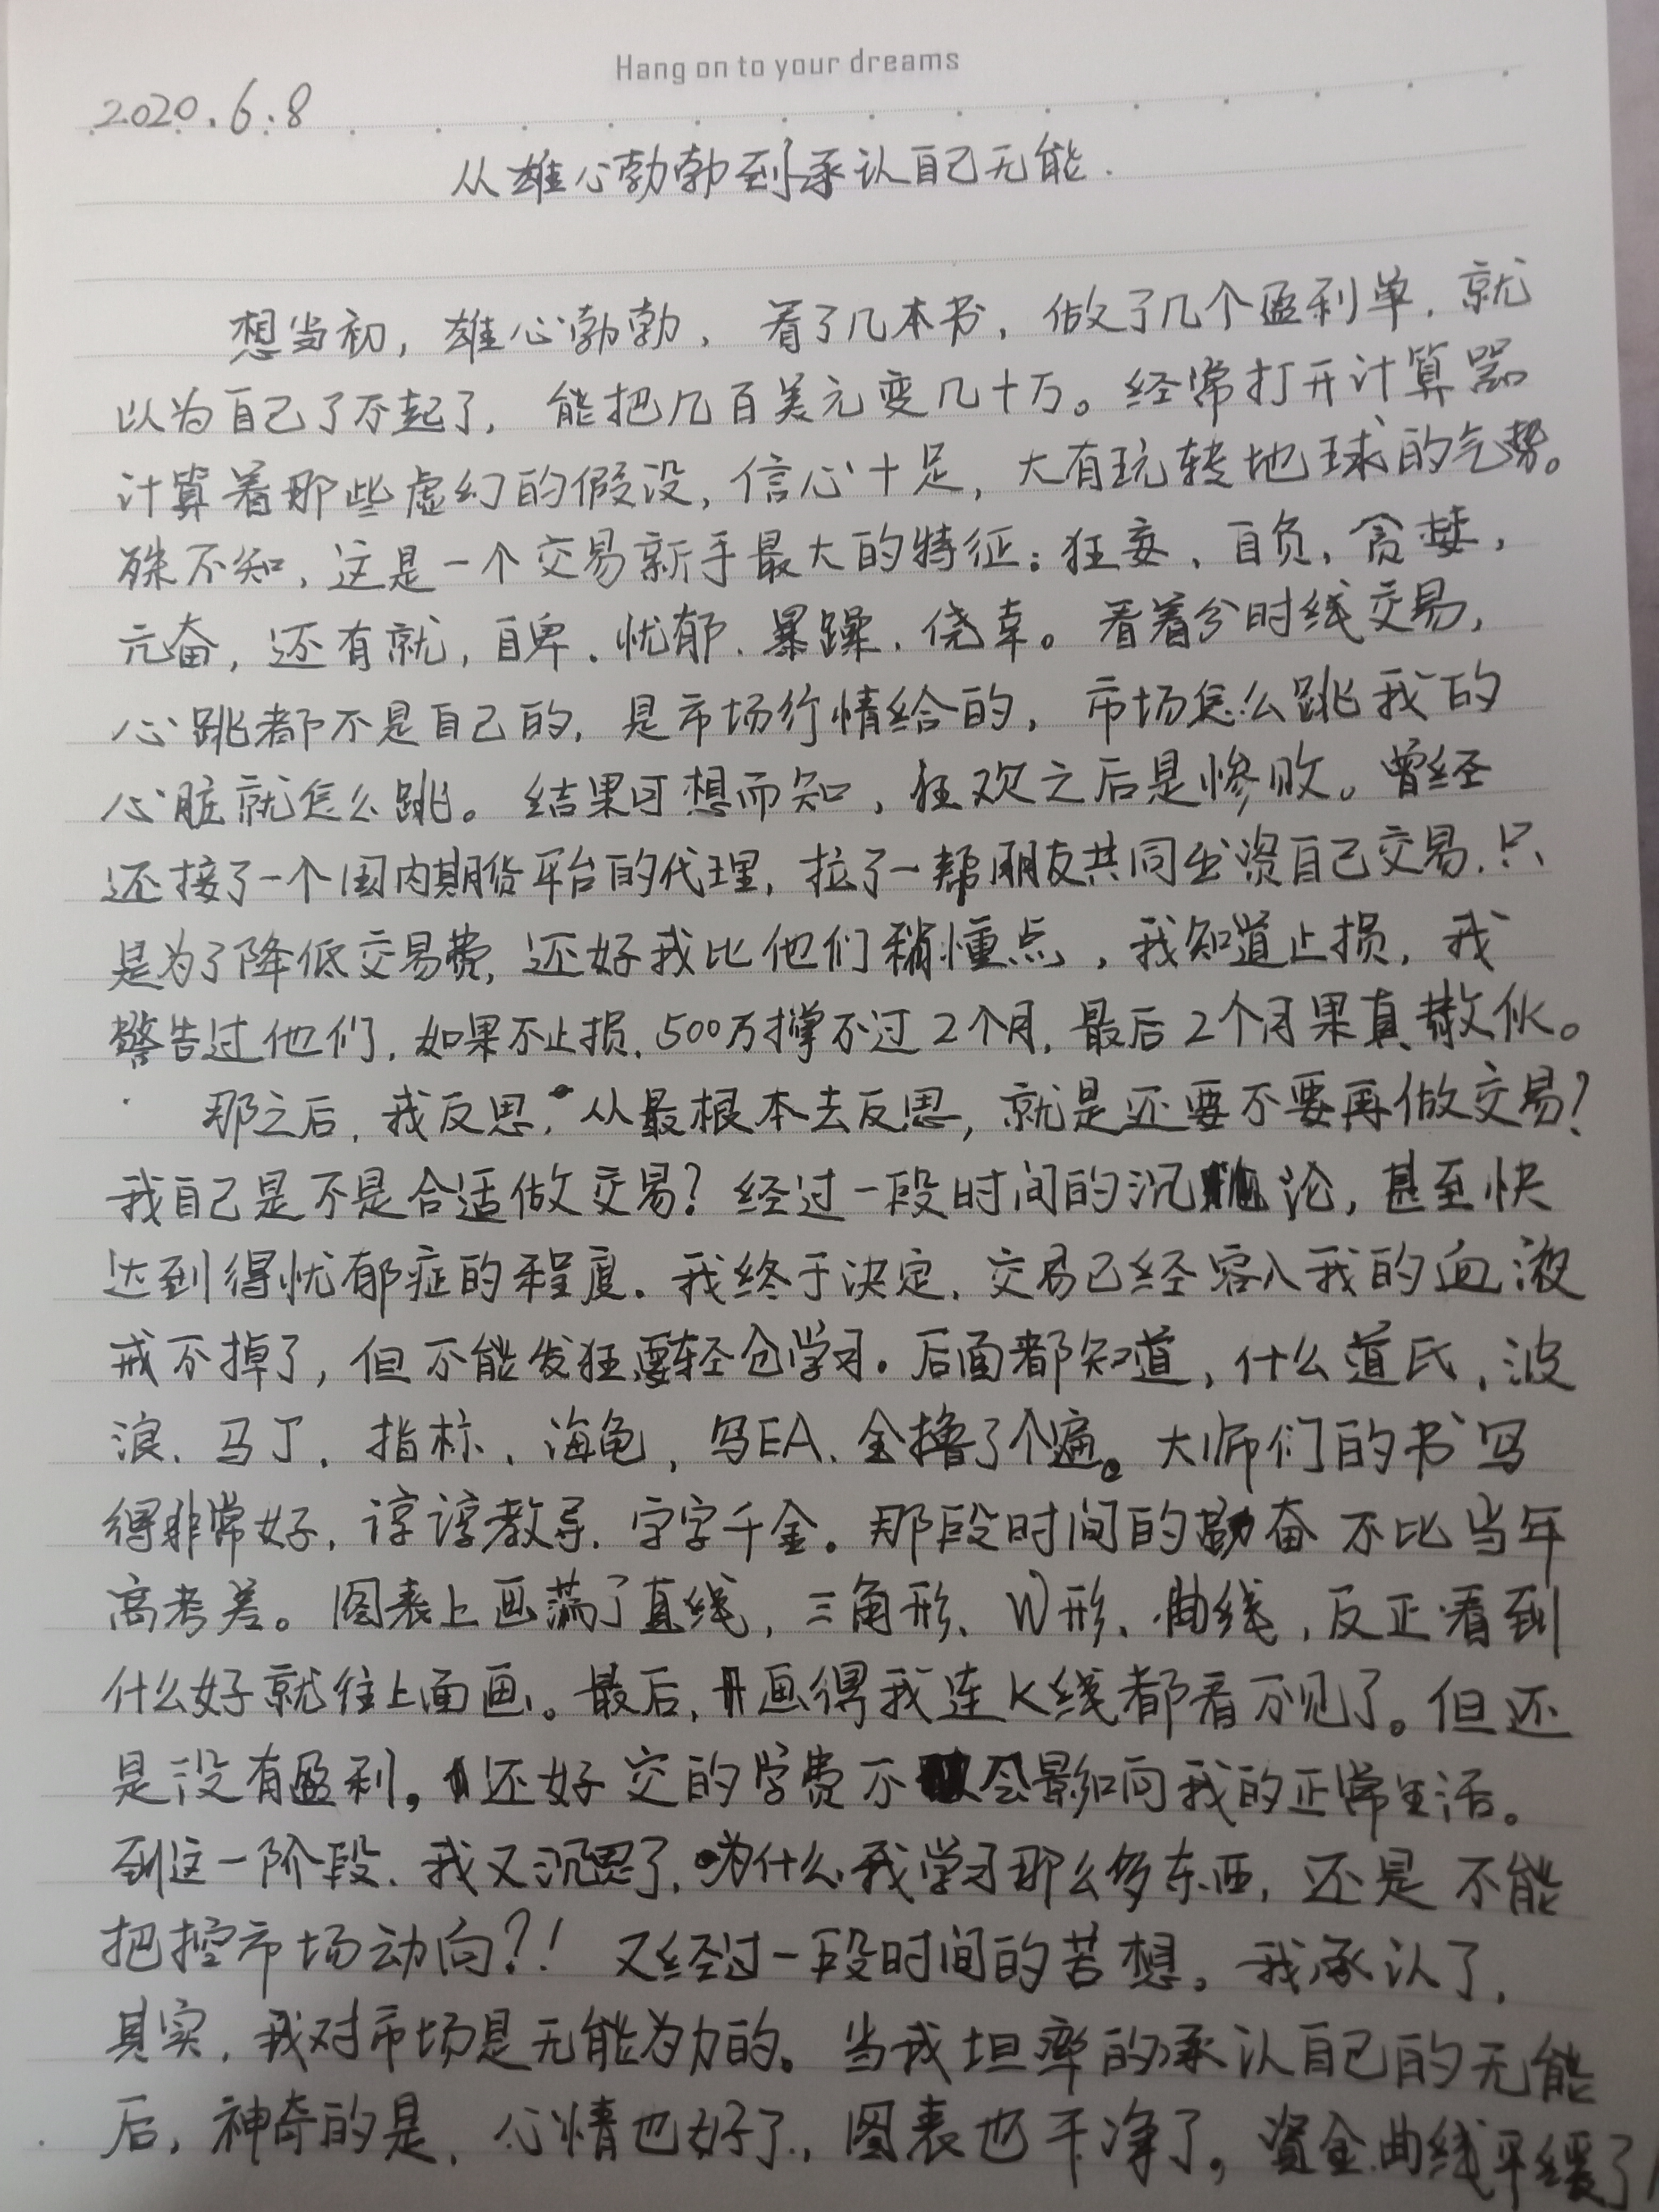 Hang on to your dreams
2020.6.8
从雄心勃勃到承认自己无能.
想当初，雄心勃勃，看了几本书，做了几个盈利单，就
以为自己了不起了，能把几百美元变几十万。经常打开计算器
计算着那些虚幻的假设，信心十足，大有玩转地球的气势。
殊不知，这是一个交易新手最大的特征：狂妄、自负、贪婪，
亢奋，还有就，自卑、忧郁、暴躁、侥幸。看着分时线交易，
心跳都不是自己的，是市场行情给的，市场怎么跳我的
心脏就怎么跳。结果可想而知，狂欢之后是惨败。曾经
还接了一个国内期货平台的代理，拉了一帮朋友共同出资自己交易，只
是为了降低交易费，还好我比他们稍懂点，我知道止损，我
警告过他们，如果不止损，500万撑不过2个月，最后2个月果真散伙。
那之后，我反思，从最根本去反思，就是还要不要再做交易？
我自己是不是合适做交易？经过一段时间的沉沦，甚至快
达到得忧郁症的程度。我终于决定，交易已经容入我的血液
戒不掉了，但不能发狂要轻仓学习。后面都知道，什么道氏，波
浪、马丁，指标、海龟，写EA、全撸了个遍。大师们的书写
得非常好，谆谆教导，字字千金。那段时间的勤奋不比当年
高考差。图表上画满了直线，三角形、W形、曲线，反正看到
什么好就往上面画。最后，画得我连K线都看不见了。但还
是没有盈利。还好交的学费不会影响我的正常生活。
到这一阶段，我又沉思了，为什么我学习那么多东西，还是不能
把控市场动向？！又经过一段时间的苦想。我承认了，
其实，我对市场是无能为力的。当我坦率的承认自己的无能
后，神奇的是，心情也好了，图表也干净了，资金曲线平缓了